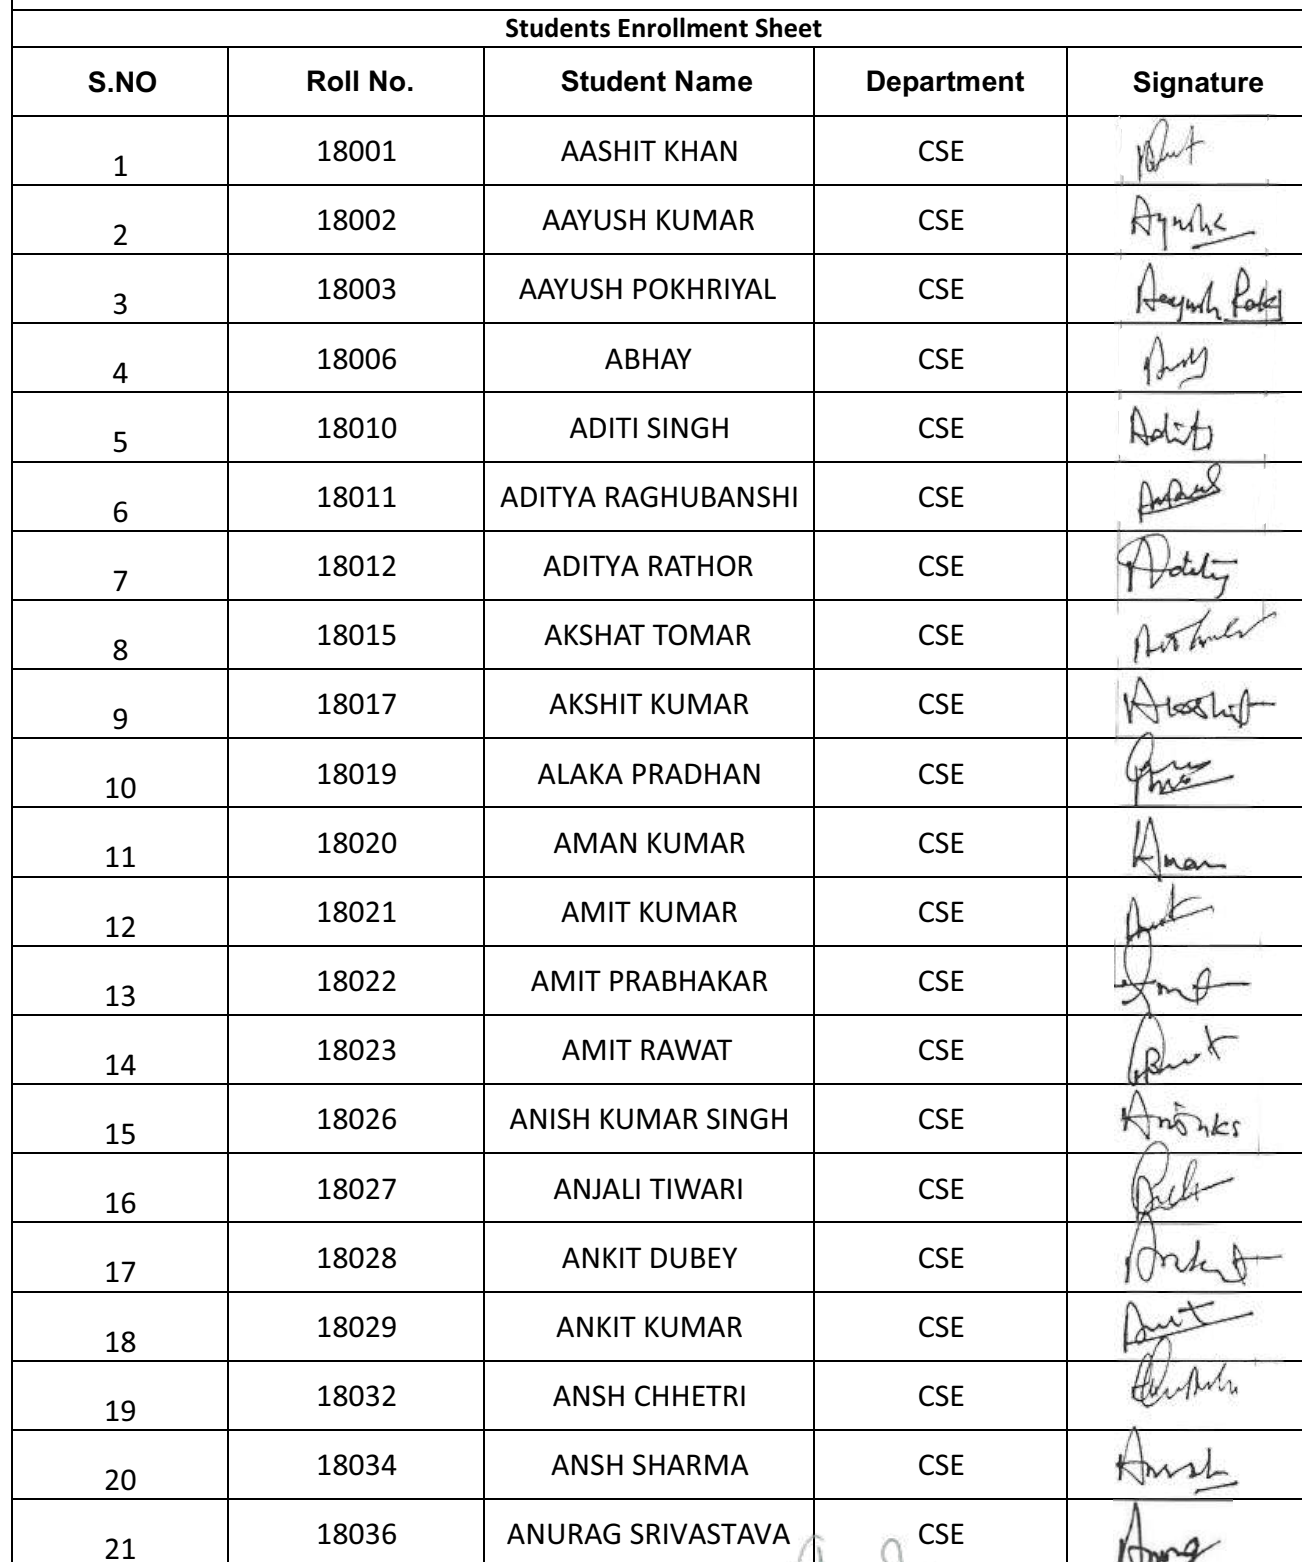 Students Enrollment Sheet
S.NO Roll No. Student Name Department Signature
1 18001 AASHIT KHAN CSE
2 18002 AAYUSH KUMAR CSE
3 18003 AAYUSH POKHRIYAL CSE
4 18006 ABHAY CSE
5 18010 ADITI SINGH CSE Aditi
6 18011 ADITYA RAGHUBANSHI CSE
7 18012 ADITYA RATHOR CSE
8 18015 AKSHAT TOMAR CSE
9 18017 AKSHIT KUMAR CSE
10 18019 ALAKA PRADHAN CSE
11 18020 AMAN KUMAR CSE Aman
12 18021 AMIT KUMAR CSE
13 18022 AMIT PRABHAKAR CSE
14 18023 AMIT RAWAT CSE
15 18026 ANISH KUMAR SINGH CSE
16 18027 ANJALI TIWARI CSE
17 18028 ANKIT DUBEY CSE
18 18029 ANKIT KUMAR CSE
19 18032 ANSH CHHETRI CSE
20 18034 ANSH SHARMA CSE
21 18036 ANURAG SRIVASTAVA CSE